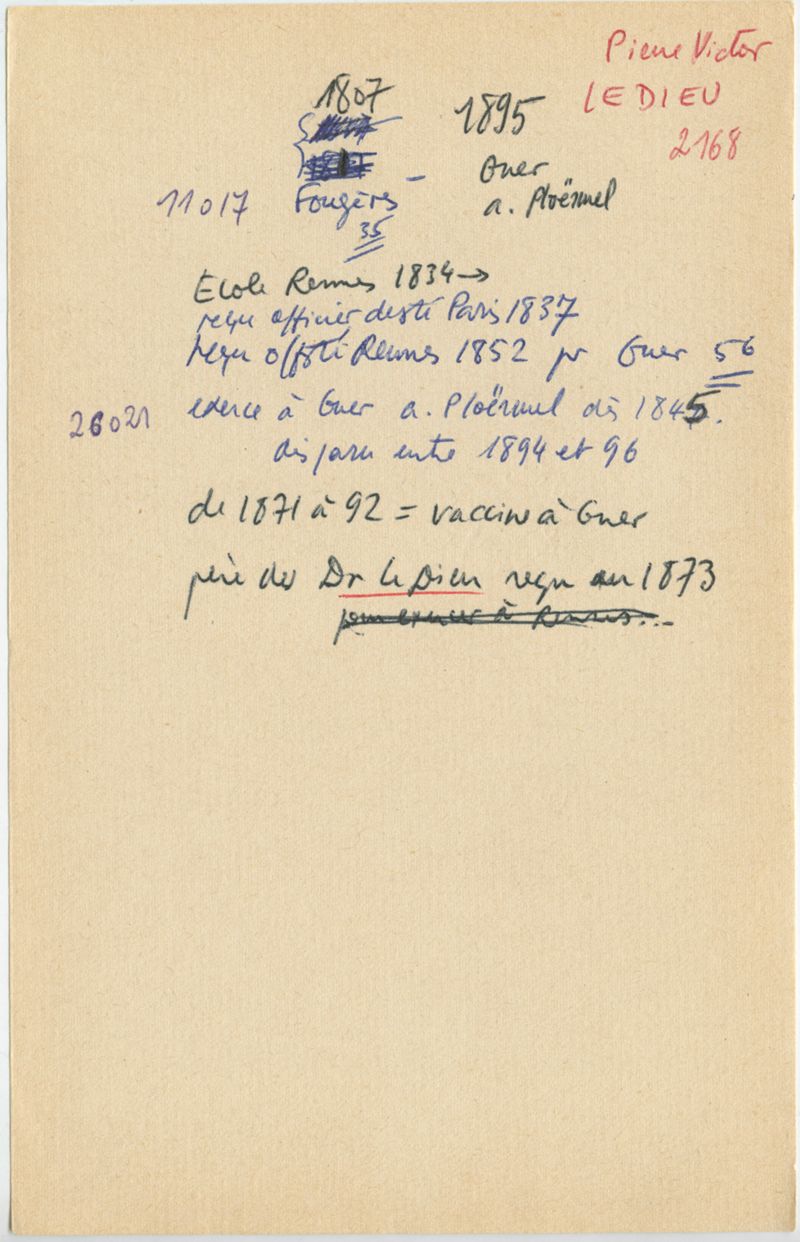 Pierre Victor
LEDIEU
2168
1807
1895
Guer
a. Ploërmel
11017 Fougères -
35
Ecole Rennes 1834→
reçu officier de sté Paris 1837
reçu off sté Rennes 1852 pr Guer 56
26021 exerce à Guer a. Ploërmel dès 1845.
disparu entre 1894 et 96
de 1871 à 92 = vaccine à Guer
père du Dr Le Dieu reçu en 1873
pour exercer à Rennes...